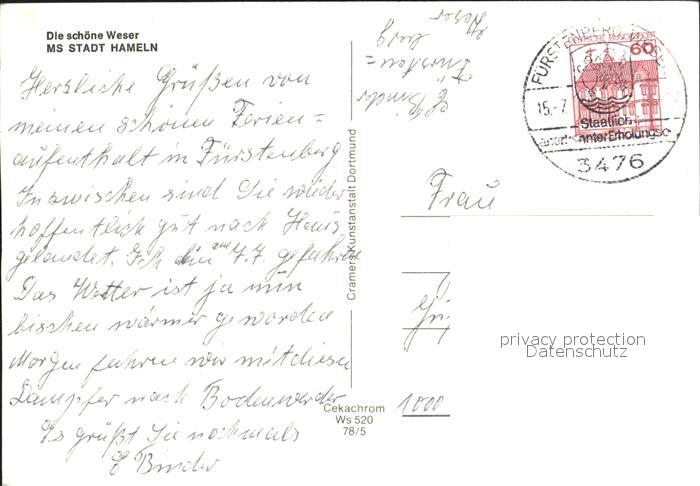 Die schöne Weser
MS STADT HAMELN
Herzliche Grüßen von
meinen schönen Ferien=
aufenthalt in Fürstenberg
Inzwischen sind Sie wieder
hoffentlich gut nach Haus
gelandet. Ich bin am 7.7 gefahren
Das Wetter ist ja nun
bischen wärmer geworden
Morgen fahren wir mit diesen
Dampfer nach Bodenwerder
Es grüßt Sie nochmals
E Binder
Cramers Kunstanstalt Dortmund
Cekachrom
Ws 520
78/5
E Binder
Fürsten=
berg
Weser
FÜRSTENBERG, WESER
15.-7
Staatlich
anerkannter Erholungso
3476
60
Frau
1000
privacy protection
Datenschutz